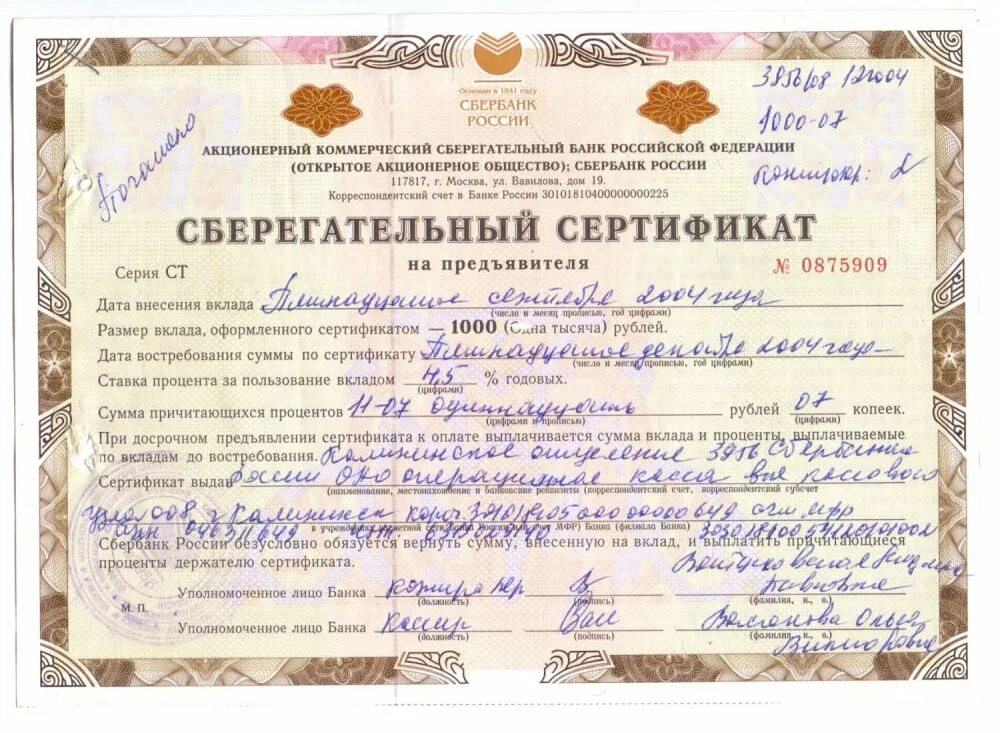 Основан в 1841 году
СБЕРБАНК
РОССИИ
3856/08 12004
1000-07
Погашено
контролер:
АКЦИОНЕРНЫЙ КОММЕРЧЕСКИЙ СБЕРЕГАТЕЛЬНЫЙ БАНК РОССИЙСКОЙ ФЕДЕРАЦИИ
(ОТКРЫТОЕ АКЦИОНЕРНОЕ ОБЩЕСТВО); СБЕРБАНК РОССИИ
117817, г. Москва, ул. Вавилова, дом 19.
Корреспондентский счет в Банке России 30101810400000000225
СБЕРЕГАТЕЛЬНЫЙ СЕРТИФИКАТ
на предъявителя
Серия СТ
№ 0875909
Дата внесения вклада Пятнадцатое сентября 2004 года
(число и месяц прописью, год цифрами)
Размер вклада, оформленного сертификатом — 1000 (Одна тысяча) рублей.
Дата востребования суммы по сертификату Пятнадцатое декабря 2004 года
(число и месяц прописью, год цифрами)
Ставка процента за пользование вкладом 4,5 % годовых.
(цифрами)
Сумма причитающихся процентов 11-07 одиннадцать рублей 07 копеек.
(цифрами и прописью) (цифрами)
При досрочном предъявлении сертификата к оплате выплачивается сумма вклада и проценты, выплачиваемые
по вкладам до востребования. Калининское отделение 3956 Сбербанка
Сертификат выдан России ОАО операционная касса вне кассового
(наименование, местонахождение и банковские реквизиты (корреспондентский счет, корреспондентский субсчет
узла 008 г. Калининск
в учреждении расчетной сети Банка России или счет МФР) Банка (филиала Банка)
Сбербанк России безусловно обязуется вернуть сумму, внесенную на вклад, и выплатить причитающиеся
проценты держателю сертификата.
Уполномоченное лицо Банка контролер
(должность) (подпись) (фамилия, и., о.)
М. П.
Уполномоченное лицо Банка кассир Ольга
(должность) (подпись) (фамилия, и., о.)